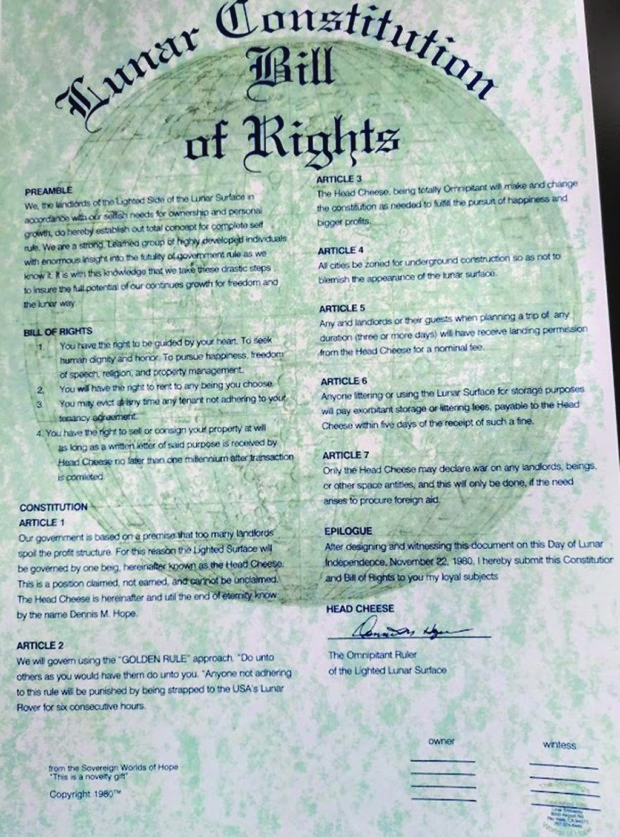 Lunar Constitution
Bill
of Rights
PREAMBLE
We, the landlords of the Lighted Side of the Lunar Surface in
accordance with our selfish needs for ownership and personal
growth, do hereby establish out total concept for complete self
rule. We are a strong, Learned group of highly developed individuals
with enormous insight into the futulity of government rule as we
know it. It is with this knowledge that we take these drastic steps
to insure the full potential of our continues growth for freedom and
the lunar way
BILL OF RIGHTS
1. You have the right to be guided by your heart. To seek
human dignity and honor. To pursue happiness, freedom
of speech, religion, and property management.
2. You will have the right to rent to any being you choose.
3. You may evict at any time any tenant not adhering to your
tenancy agreement.
4. You have the right to sell or consign your property at will
as long as a written letter of said purpose is received by
Head Cheese no later than one millennium after transaction
is comleted.
CONSTITUTION
ARTICLE 1
Our government is based on a premise that too many landlords
spoil the profit structure. For this reason the Lighted Surface will
be governed by one beig, hereinafter known as the Head Cheese.
This is a position claimed, not earned, and cannot be unclaimed.
The Head Cheese is hereinafter and util the end of eternity know
by the name Dennis M. Hope.
ARTICLE 2
We will govern using the "GOLDEN RULE" approach. "Do unto
others as you would have them do unto you. "Anyone not adhering
to this rule will be punished by being strapped to the USA's Lunar
Rover for six consecutive hours.
from the Sovereign Worlds of Hope
"This is a novelty gift"
Copyright 1980™
ARTICLE 3
The Head Cheese, being totally Omnipitant will make and change
the constitution as needed to fulfill the pursuit of happiness and
bigger profits.
ARTICLE 4
All cities be zoned for underground construction so as not to
blemish the appearance of the lunar surface.
ARTICLE 5
Any and landlords or their guests when planning a trip of any
duration (three or more days) will have receive landing permission
from the Head Cheese for a nominal fee.
ARTICLE 6
Anyone littering or using the Lunar Surface for storage purposes
will pay exorbitant storage or littering fees, payable to the Head
Cheese within five days of the receipt of such a fine.
ARTICLE 7
Only the Head Cheese may declare war on any landlords, beings,
or other space antities, and this will only be done, if the need
arises to procure foreign aid.
EPILOGUE
After designing and witnessing this document on this Day of Lunar
Independence, November 22, 1980, I hereby submit this Constitution
and Bill of Rights to you my loyal subjects
HEAD CHEESE
Dennis M Hope
The Omnipitant Ruler
of the Lighted Lunar Surface
owner
wintess